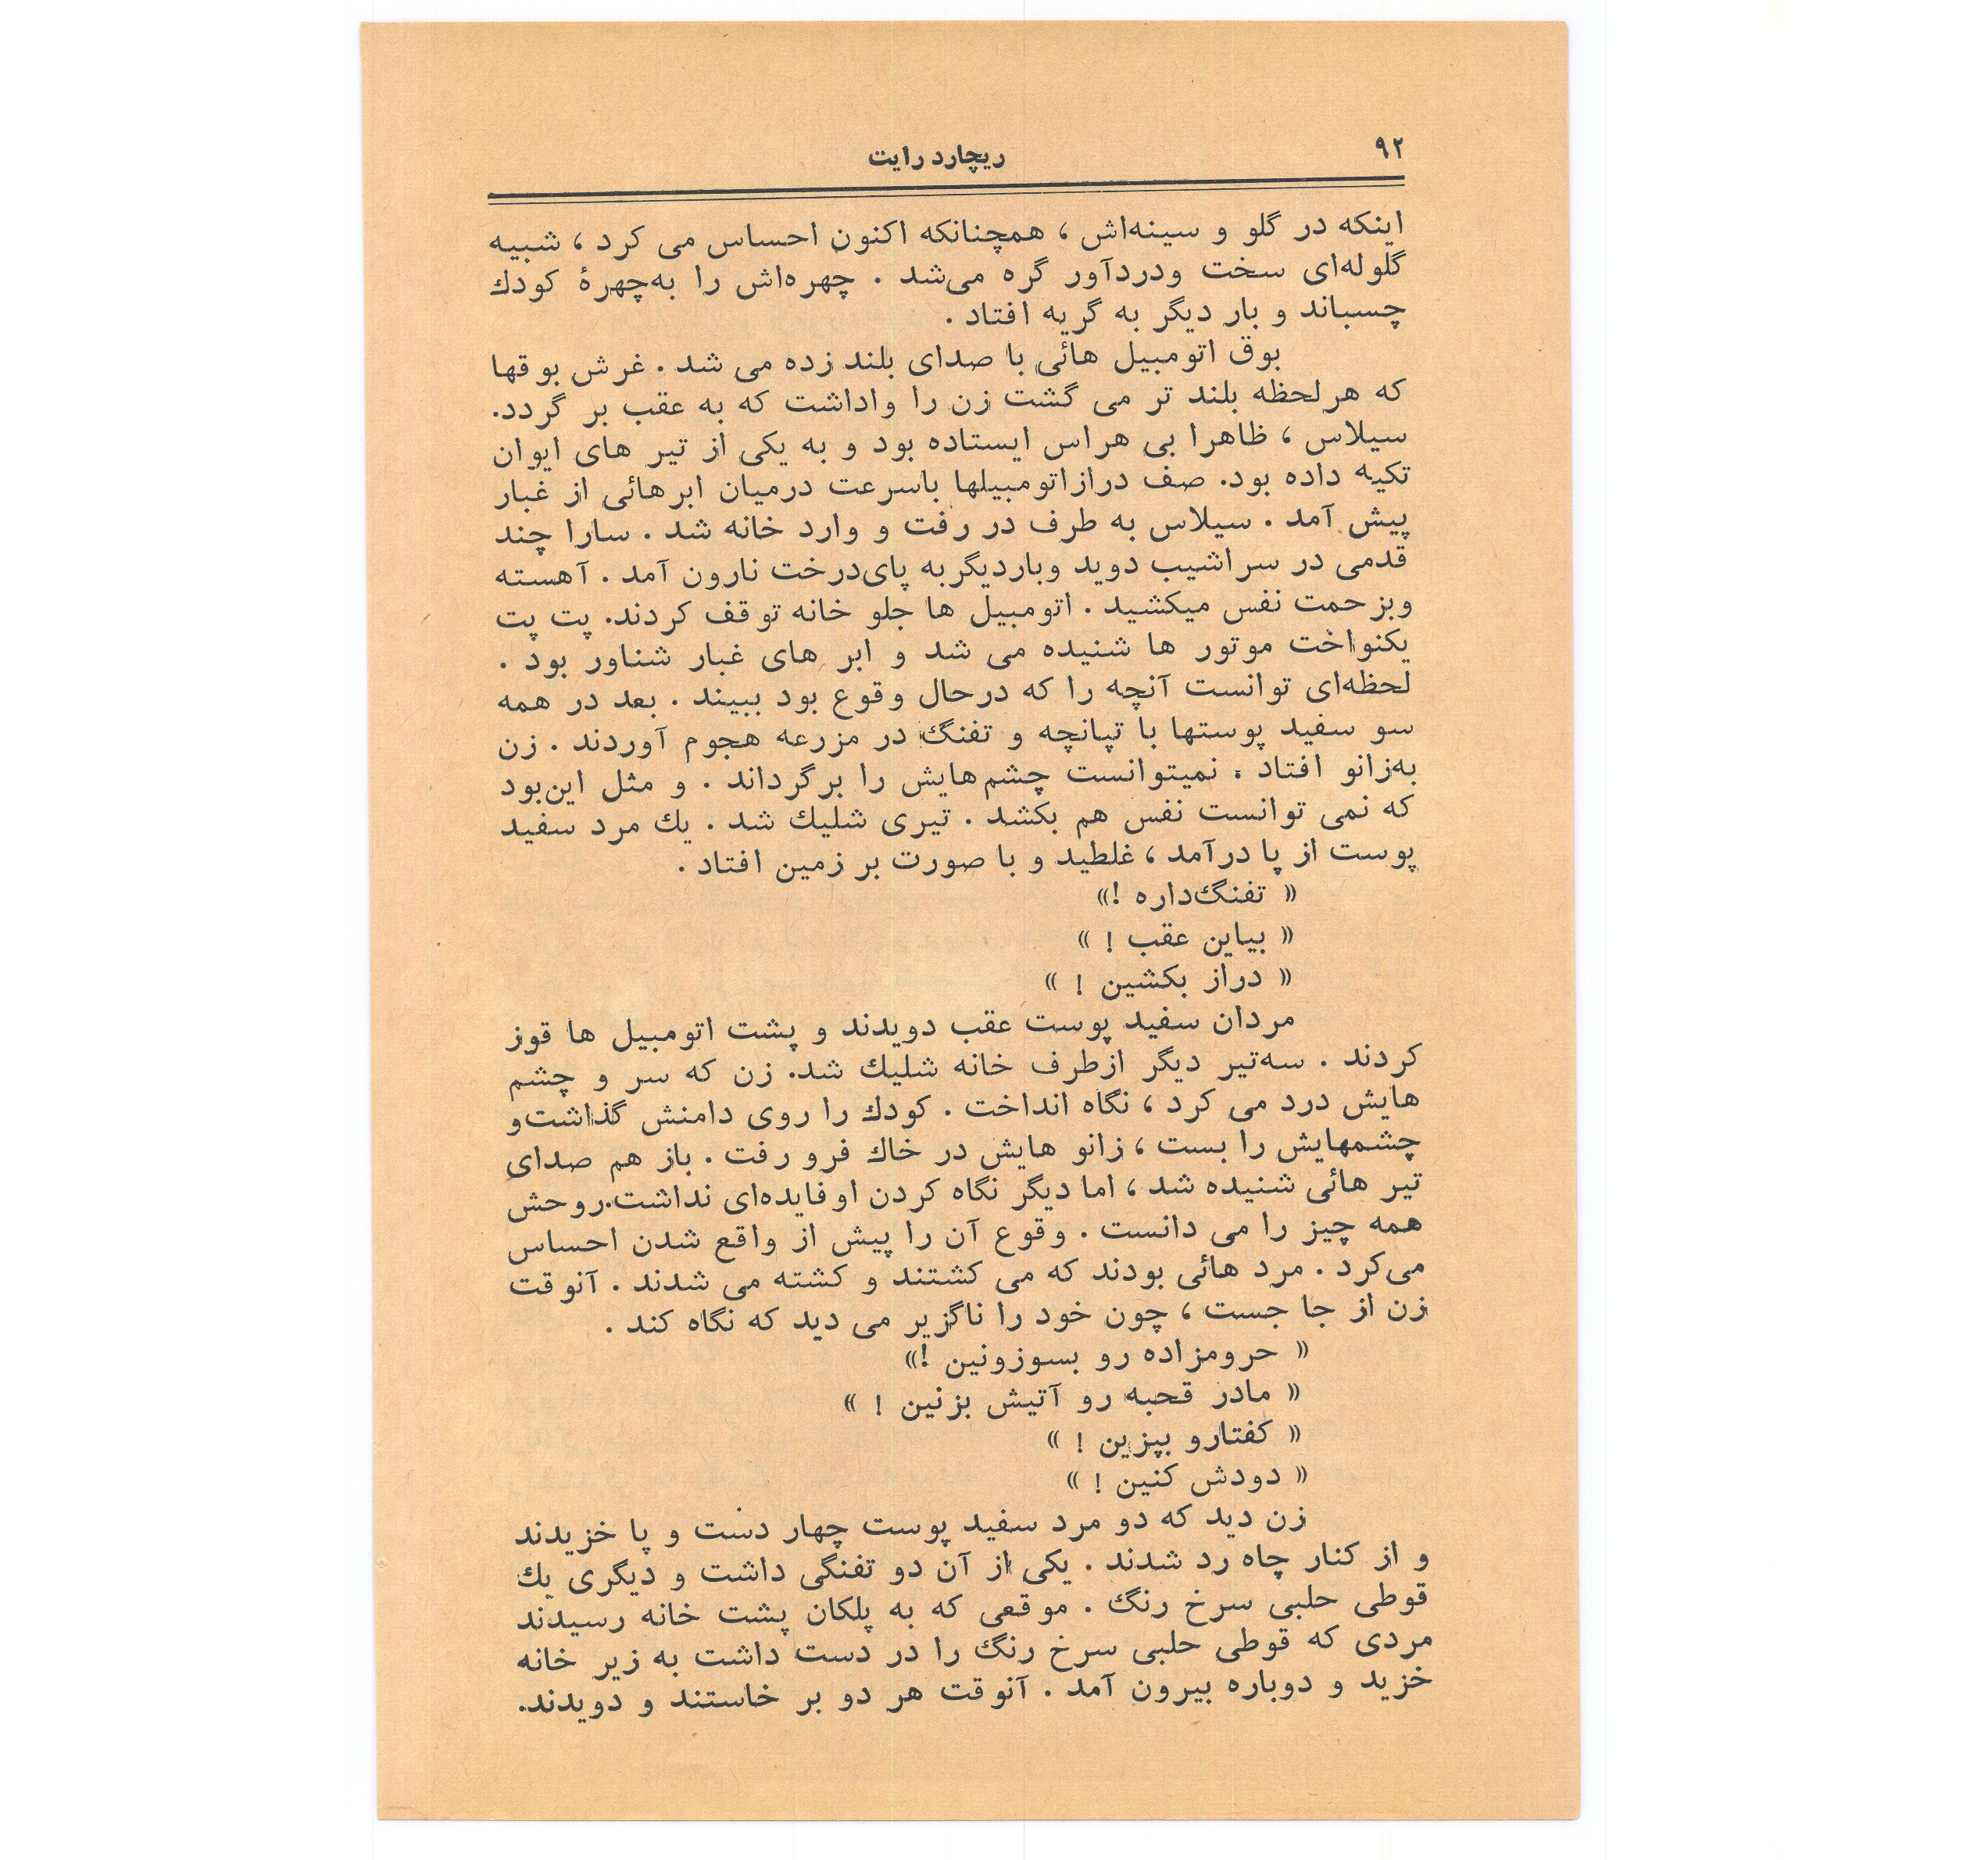 ۹۲
ریچارد رایت
اینکه در گلو و سینه‌اش ، همچنانکه اکنون احساس می کرد ، شبیه
گلوله‌ای سخت ودردآور گره می‌شد . چهره‌اش را به‌چهرهٔ کودك
چسباند و بار دیگر به گریه افتاد .
بوق اتومبیل هائی با صدای بلند زده می شد . غرش بوقها
که هر لحظه بلند تر می گشت زن را واداشت که به عقب بر گردد.
سیلاس ، ظاهرا بی هراس ایستاده بود و به یکی از تیر های ایوان
تکیه داده بود. صف درازاتومبیلها باسرعت درمیان ابرهائی از غبار
پیش آمد . سیلاس به طرف در رفت و وارد خانه شد . سارا چند
قدمی در سراشیب دوید وباردیگربه پای‌درخت نارون آمد . آهسته
وبزحمت نفس میکشید . اتومبیل ها جلو خانه توقف کردند. پت پت
یکنواخت موتور ها شنیده می شد و ابر های غبار شناور بود .
لحظه‌ای توانست آنچه را که درحال وقوع بود ببیند . بعد در همه
سو سفید پوستها با تپانچه و تفنگ در مزرعه هجوم آوردند . زن
به‌زانو افتاد . نمیتوانست چشم‌هایش را برگرداند . و مثل این‌بود
که نمی توانست نفس هم بکشد . تیری شلیك شد . یك مرد سفید
پوست از پا درآمد ، غلطید و با صورت بر زمین افتاد .
« تفنگ‌داره !»
« بیاین عقب ! »
« دراز بکشین ! »
مردان سفید پوست عقب دویدند و پشت اتومبیل ها قوز
کردند . سه‌تیر دیگر ازطرف خانه شلیك شد. زن که سر و چشم
هایش درد می کرد ، نگاه انداخت . کودك را روی دامنش گذاشت‌و
چشمهایش را بست ، زانو هایش در خاك فرو رفت . باز هم صدای
تیر هائی شنیده شد ، اما دیگر نگاه کردن او فایده‌ای نداشت.روحش
همه چیز را می دانست . وقوع آن را پیش از واقع شدن احساس
می‌کرد . مرد هائی بودند که می کشتند و کشته می شدند . آنوقت
زن از جا جست ، چون خود را ناگزیر می دید که نگاه کند .
« حرومزاده رو بسوزونین !»
« مادر قحبه رو آتیش بزنین ! »
« کفتارو بپزین ! »
« دودش کنین ! »
زن دید که دو مرد سفید پوست چهار دست و پا خزیدند
و از کنار چاه رد شدند . یکی از آن دو تفنگی داشت و دیگری یك
قوطی حلبی سرخ رنگ . موقعی که به پلکان پشت خانه رسیدند
مردی که قوطی حلبی سرخ رنگ را در دست داشت به زیر خانه
خزید و دوباره بیرون آمد . آنوقت هر دو بر خاستند و دویدند.